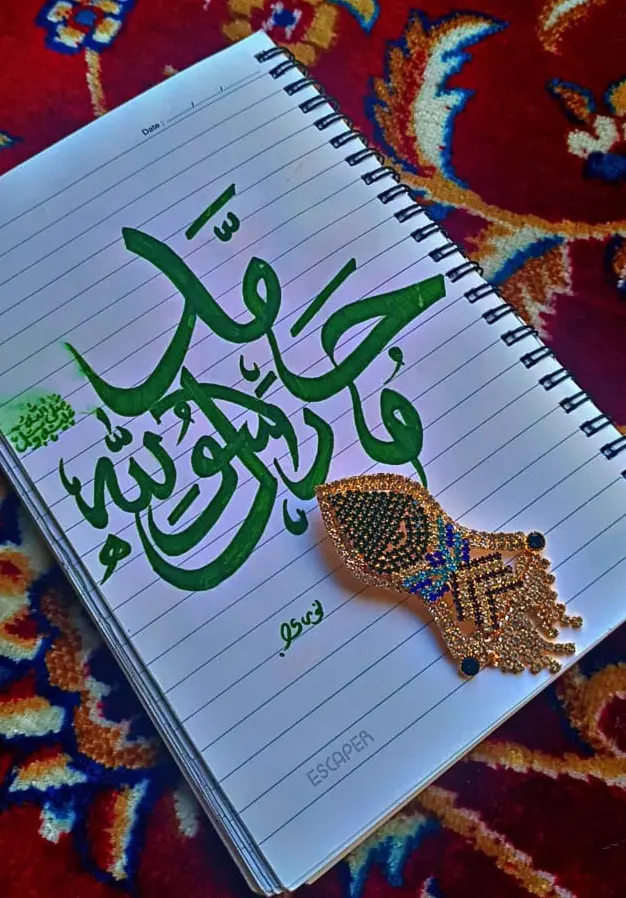 Date : ....../....../......
محمد
رسول الله
ESCAPER